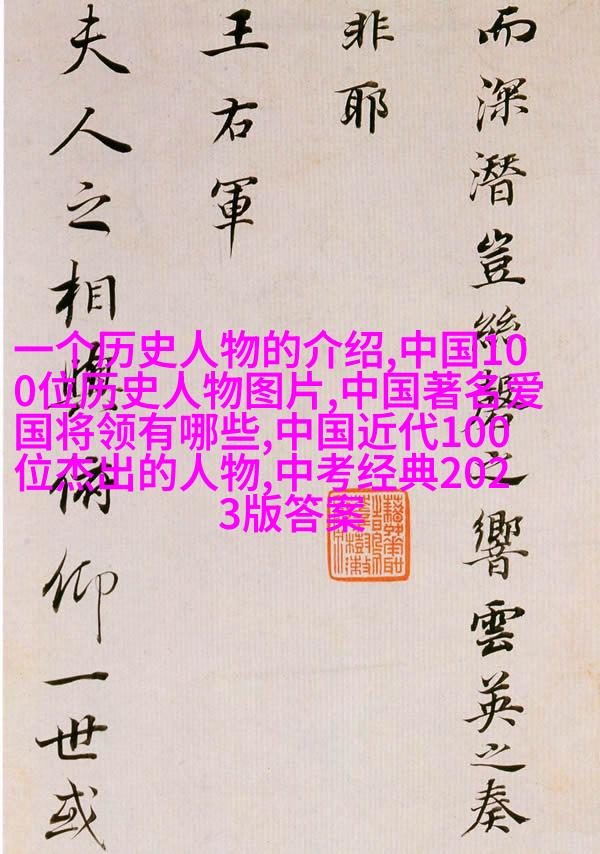 而深潛豈絲磬之響雲英之奏
非耶
王右軍
夫人之相與俯仰一世或
一个历史人物的介绍,中国10
0位历史人物图片,中国著名爱
国将领有哪些,中国近代100
位杰出的人物,中考经典202
3版答案